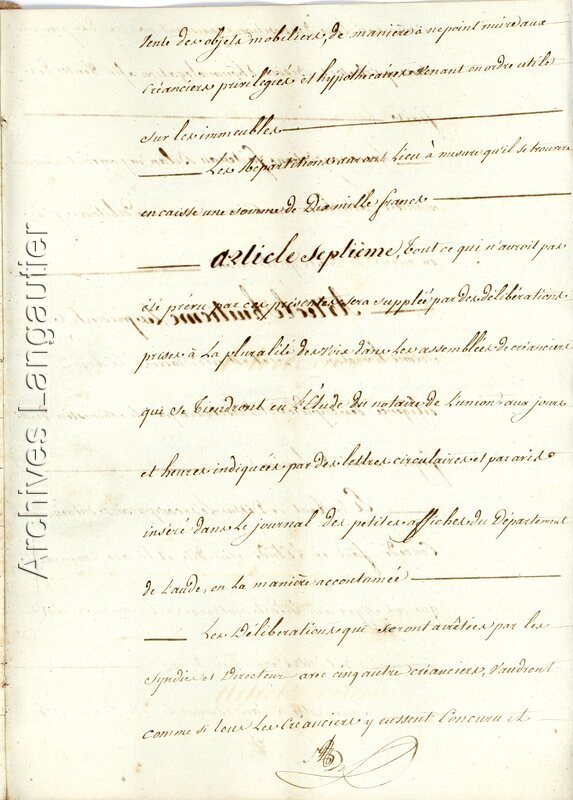 Vente des objets mobiliers, de manière à ne point nuire aux
créanciers privilégiés et hypothécaires venant en ordre utile
sur les immeubles
Les Répartitions auront Lieu à mesure qu'il se trouvera
en caisse une somme de Dix mille francs
Article Septième, Tout ce qui n'auroit pas
été prévu par ces présentes sera supplée par des délibérations
prises à La pluralité des voix dans Les assemblées de créanciers
qui se Tiendront en L'Étude du notaire de L'union aux jours
et heures indiquées par des lettres circulaires et par avis
inséré dans Le journal des petites affiches du Département
de L'aude, en la manière accoutumée
Les Délibérations qui seront arrêtées par les
Syndics et Directeur avec cinq autre créanciers, Vaudront
comme si tous Les Créanciers y eussent Concouru et
Archives Langautier